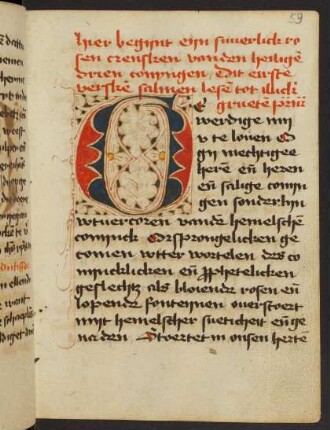 59
hier begint eyn suuerlick ro
sen crensken vanden heilige͂
drien conyngen, Dit eirste
verske salmen lese͂ tot ilicki
gruete
werdige mi
v te louen O
gij mechtigee
here͂ en͂ heren
en͂ salige conin
gen sonderlin
wtuercoren vande hemelsche͂
coninck Orsprongelicken ge
comen wtter wortelen des co
nincklicken en͂ prophetelicken
geslechtz als bloiende rosen en͂
lopende fonteinen ouerstoert
mit hemelscher sueticheit en͂ ge
naden Stoertet in onsen herte͂